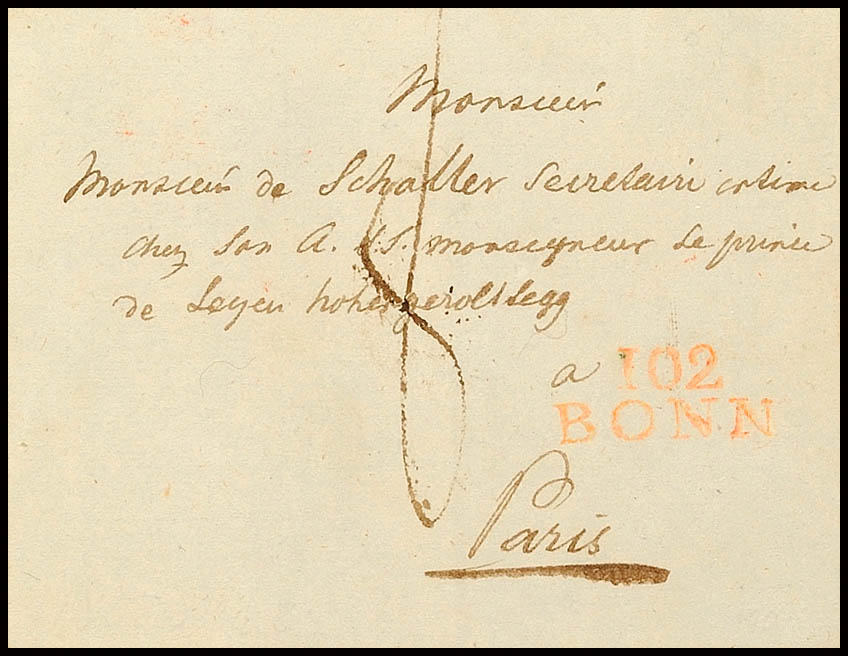 Monsieur
Monsieur de Schaller Secretaire intime
chez Son A. S. monseigneur Le prince
de Leyen hohengeroltsegg
8
a 102
BONN
Paris